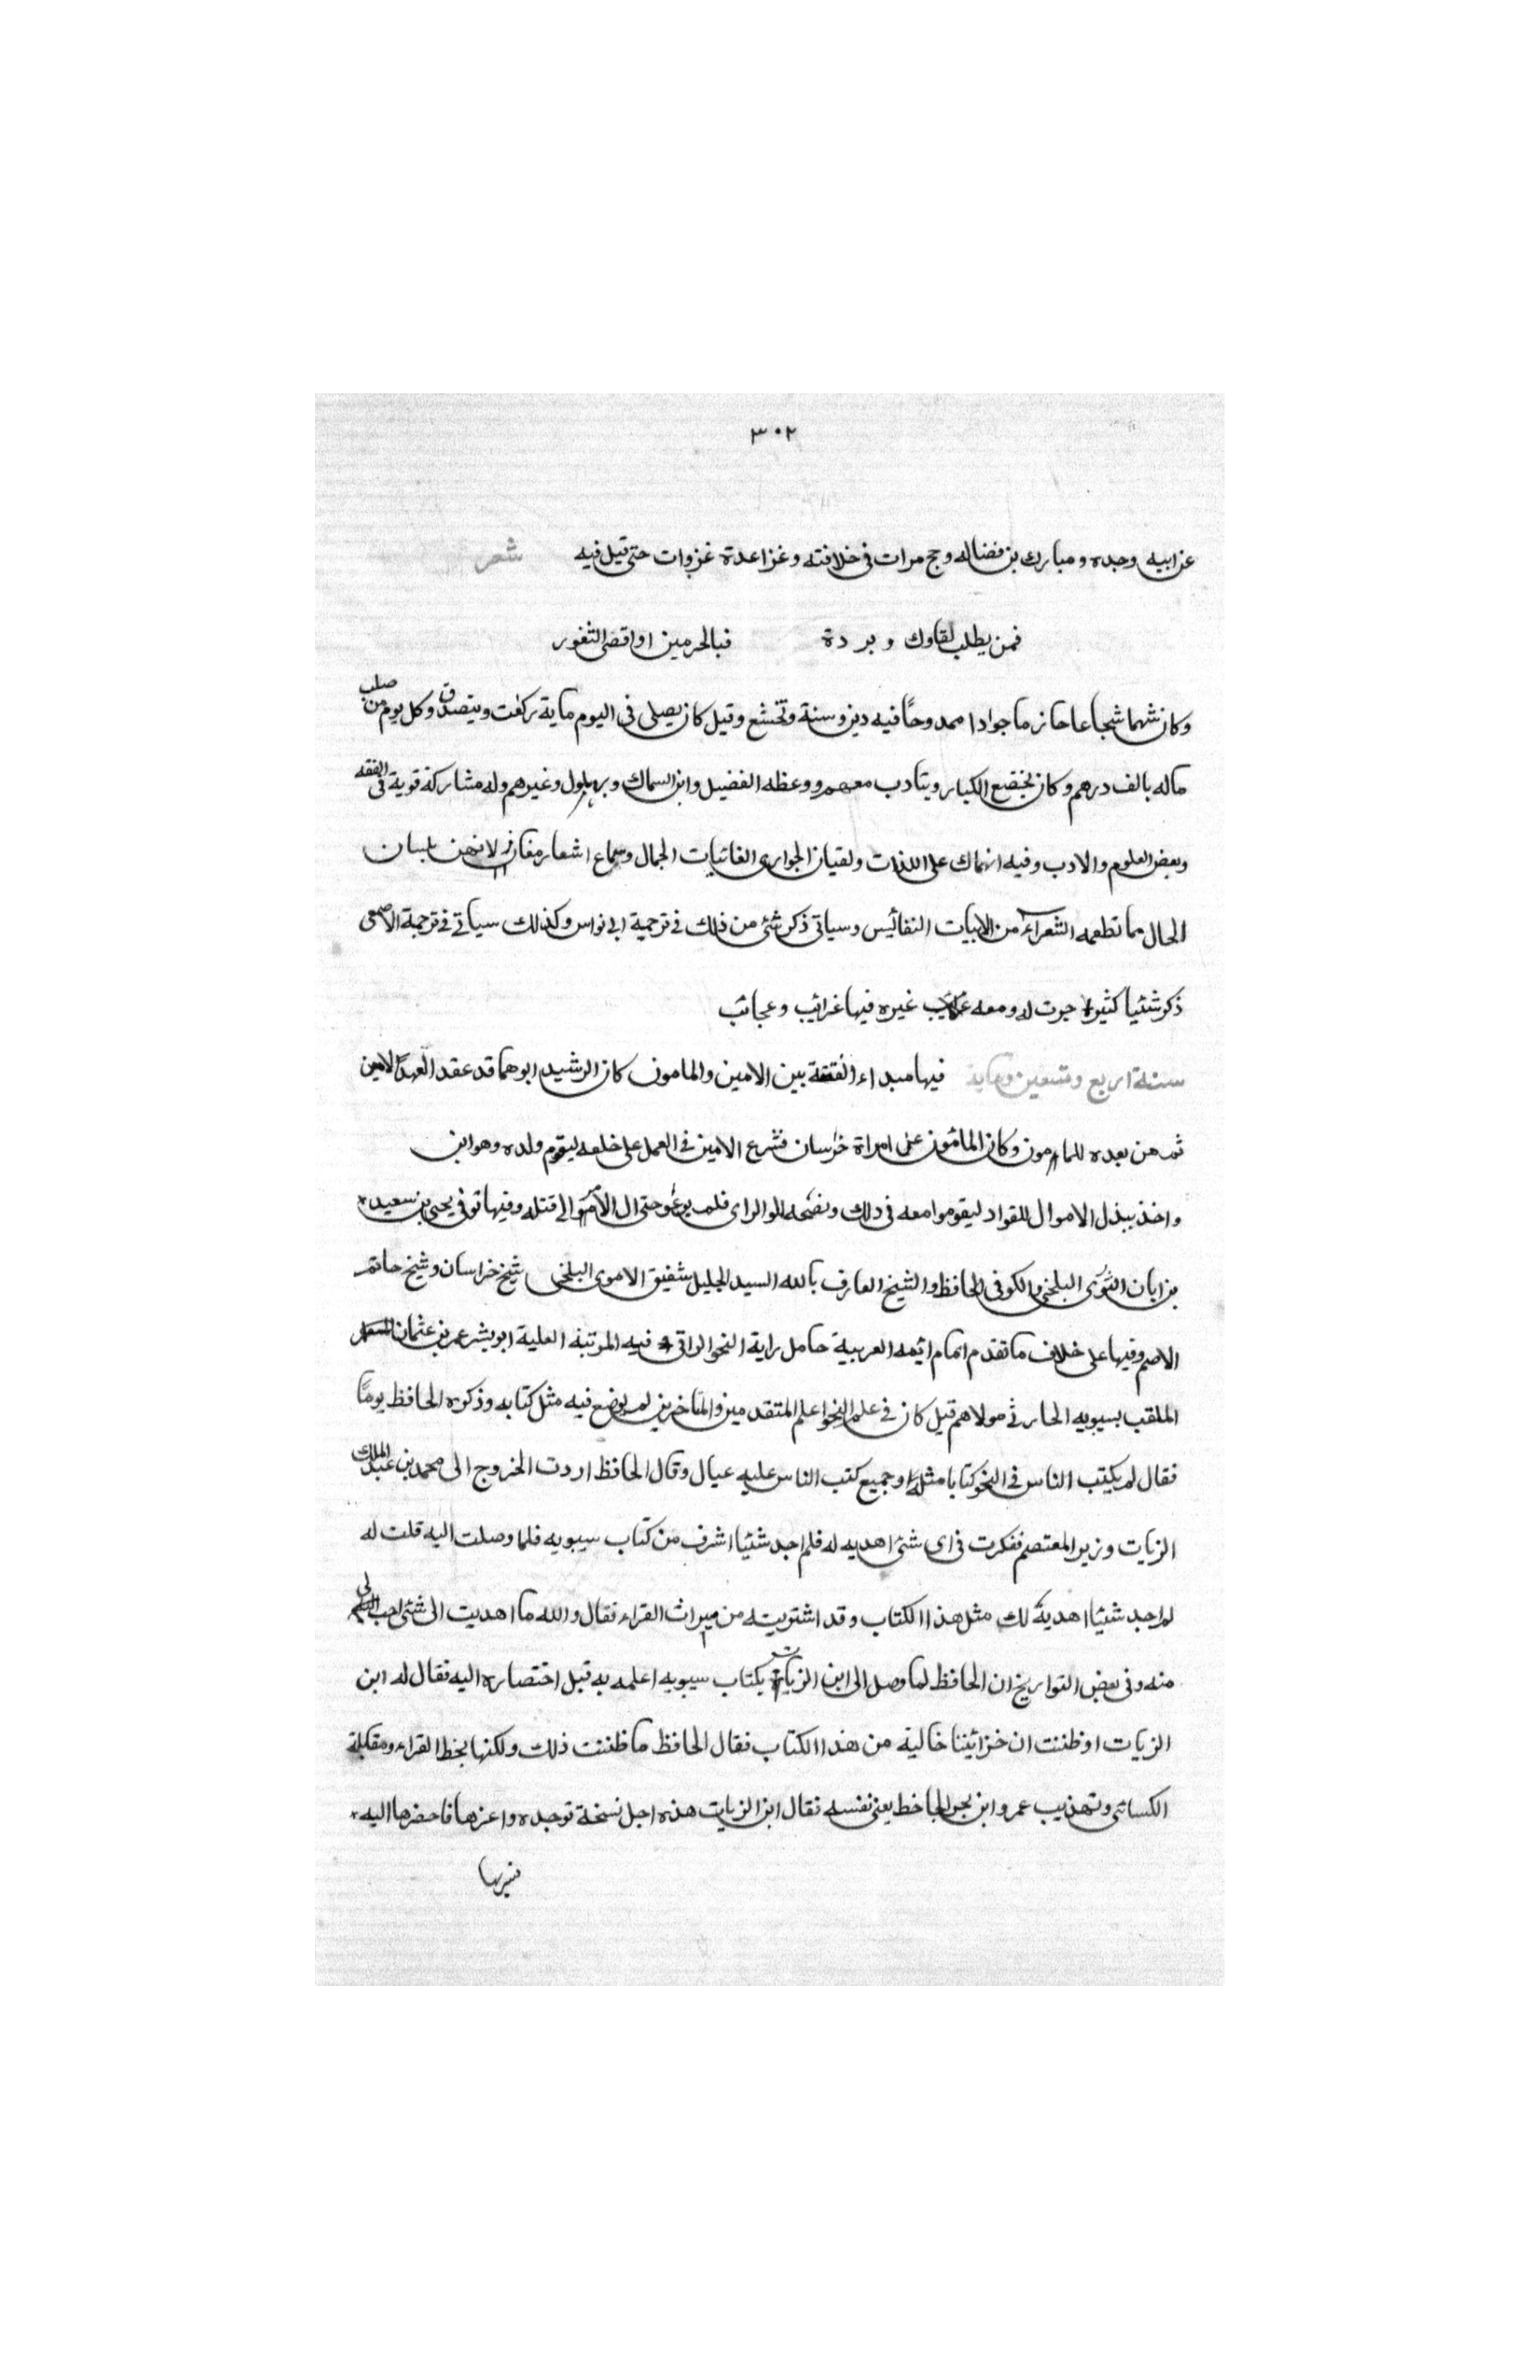 ٣٠٢
عن ابيه وجده ومبارك بن فضاله وحج مرات فى خلافته وغزا عدة غزوات حتى قيل فيه شعر
فمن يطلب لقاوك وبردة فبالحرمين او اقصى الثغور
وكان شهما شجاعا حازما جوادا ممدوحًا فيه دين وسنة وتخشع وقيل كان يصلى فى اليوم ماية ركعت ويتصدق وكل يوم من صلب
ماله بالف درهم وكان يخضع الكبار ويتادب معهم ووعظه الفضيل وابن السماك وبهلول وغيرهم وله مشاركة قوية فى الفقه
وبعض العلوم والادب وفيه انهماك على اللذات ولقيان الجوارى الفاتنات الجمال وسماع اشعار مغان لانهن بلسان
الحال مما تطعمه الشعراء من الابيات النفائيس وسياتى ذكر شئ من ذلك فى ترجمة ابى نواس وكذلك سياتى فى ترجمة الاصمعى
ذكر شئيا كثيرا جرت له ومعه غيره فيها غرائب وعجائب
سنة اربع وتسعين وماية فيها مبداء الفتنة بين الامين والمامون كان الرشيد ابوهما قد عقد العهد للامين
ثم من بعده للمامون وكان المامون على امراة خراسان فشرع الامين فى العمل على خلعه ليقوم ولده وهو ابن
واخذ يبذل الاموال للقواد ليقوموا معه فى ذلك ونصحه الوالراى فلم يرعو حتى ال الامر الى قتله وفيها توفى يحيى بن سعيد
بن ابان البلخى والكوفى الحافظ والشيخ العارف بالله السيد الجليل شفيق الاموى البلخى شيخ خراسان وشيخ حاتم
الاصم وفيها على خلاف ما تقدم امام ائيمه العربية حامل راية النحو الراقى فيه المرتبة العلية ابو بشر عمر بن عثمان
الملقب بسيبويه الحارثى مولاهم قيل كان فى علم النحو اعلم المتقدمين والمتاخرين لم يوضع فيه مثل كتابه وذكره الحافظ يومًا
فقال لم يكتب الناس فى النحو كتابا مثله او جميع كتب الناس عليه عيال وقال الحافظ اردت الخروج الى محمد بن عبد الملك
الزيات وزير المعتصم ففكرت فى اى شئ اهديه له فلم اجد شئيا اشرف من كتاب سيبويه فلما وصلت اليه قلت له
لم اجد شئيا اهديه لك مثل هذا الكتاب وقد اشتريته من ميراث القراء فقال والله ما اهديت الى شئ احب الى
منه وفى بعض التواريخ ان الحافظ لما وصل الى ابن الزيات بكتاب سيبويه اعلمه به قبل اختصاره اليه فقال له ابن
الزيات اوظننت ان خزائيننا خالية من هذا الكتاب فقال الحافظ ما ظننت ذلك ولكنها بخط القراء ومقابلة
الكسائى وتهذيب عمرو ابن بحر الجاخط يعنى نفسه فقال ابن الزيات هذه اجل نسخة توجده واعزها فاحضرها اليه
فسربها